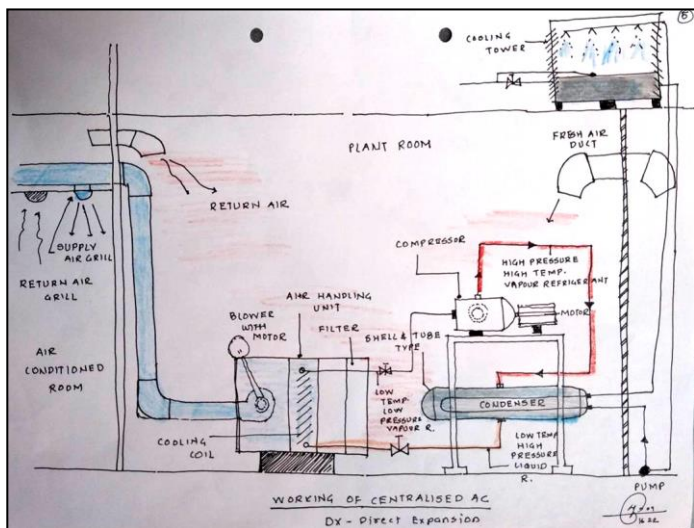 5
COOLING
TOWER
PLANT ROOM
FRESH AIR
DUCT
RETURN AIR
SUPPLY
AIR GRILL
RETURN AIR
GRILL
AIR
CONDITIONED
ROOM
COMPRESSOR
HIGH PRESSURE
HIGH TEMP-
VAPOUR REFRIGERANT
MOTOR
AIR HANDLING
UNIT
BLOWER
WITH
MOTOR
FILTER
SHELL & TUBE
TYPE
LOW
TEMP-
LOW
PRESSURE
VAPOUR R.
CONDENSER
COOLING
COIL
LOW TEMP
HIGH
PRESSURE
LIQUID
R.
PUMP
WORKING OF CENTRALISED AC
DX - Direct Expansion